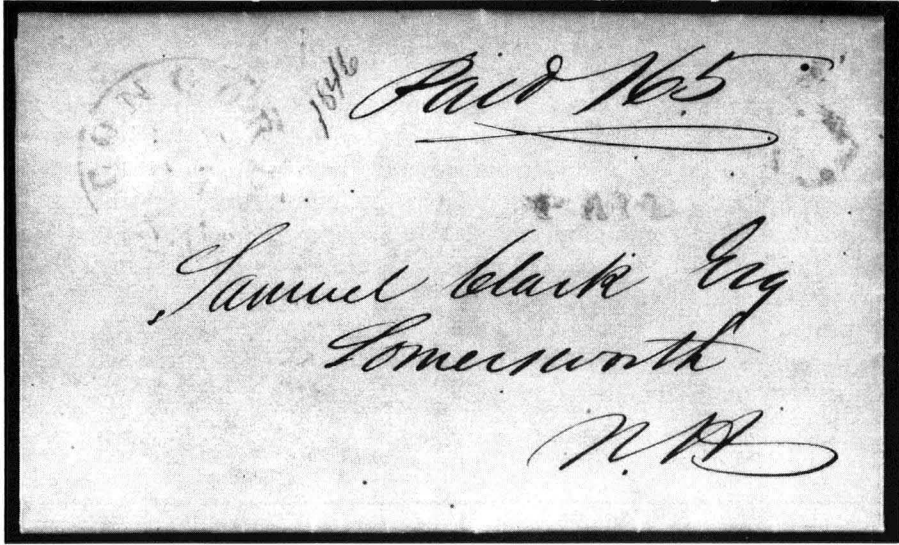 CONCOR
1846
Paid 165
Samuel Clark Esq
Somersworth
N.H